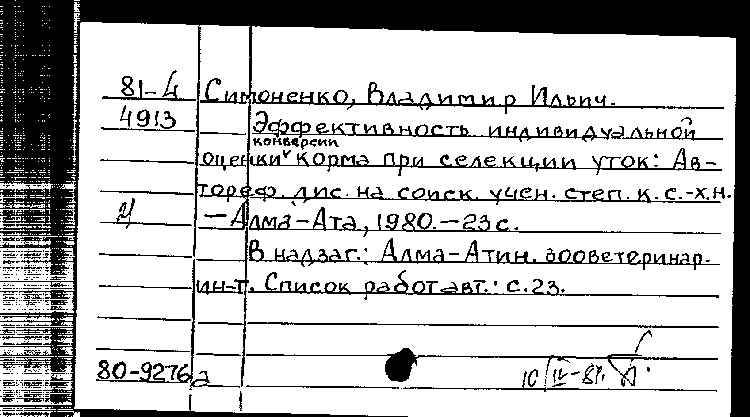 81-4 Симоненко, Владимир Ильич.
4913 Эффективность индивидуальной
конверсии
оценки ˅ корма при селекции уток: Ав-
тореф. дис. на соиск. учен. степ. к. с.-х.н.
— Алма-Ата, 1980. — 23 с.
В надзаг.: Алма-Атин. зооветеринар.
ин-т. Список работ авт.: с. 23.
80-9276а
10/IV-81.